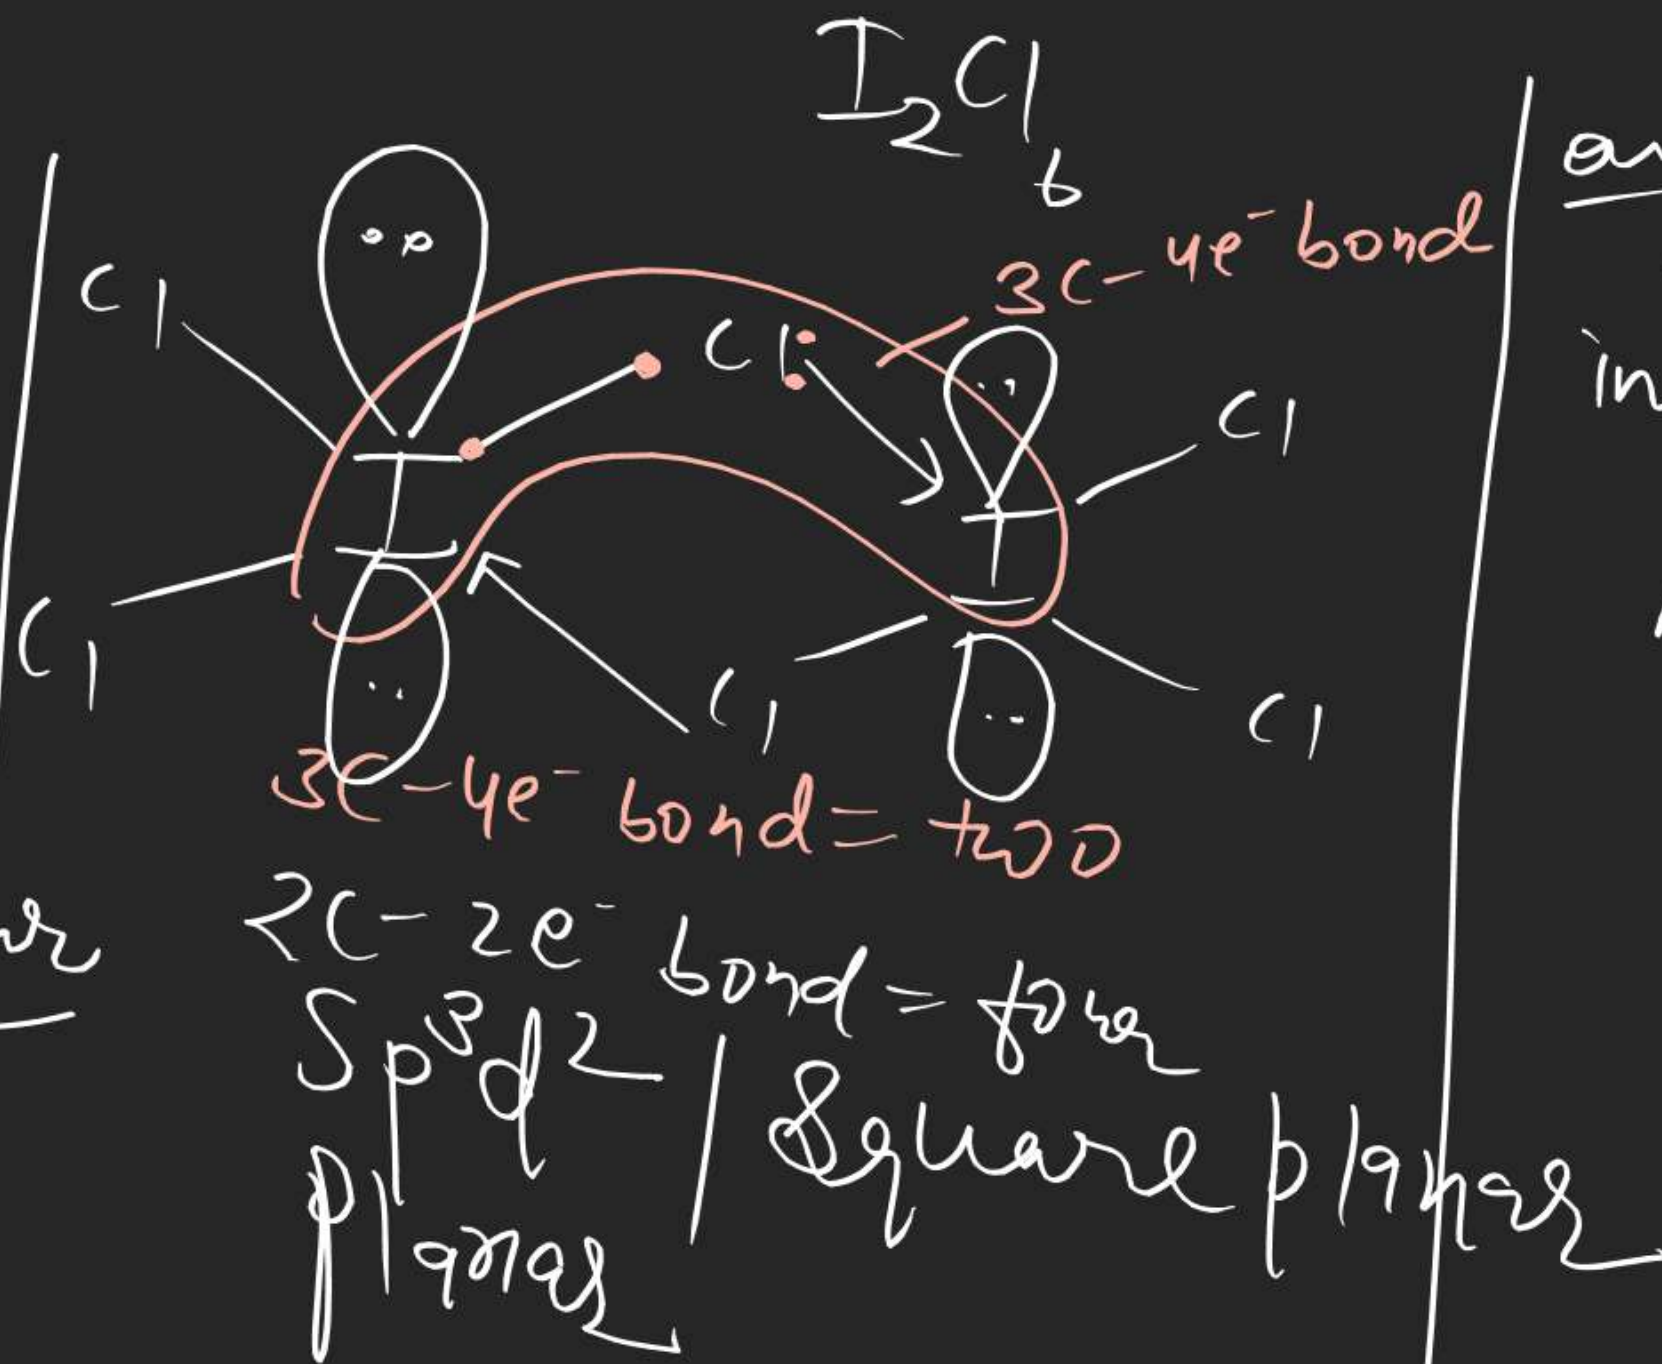 I2Cl6
3C-4e- bond
Cl
Cl
Cl
I
I
Cl
Cl
Cl
3C-4e- bond = two
2C-2e- bond = four
Sp3d2 / Square planar
planar
in